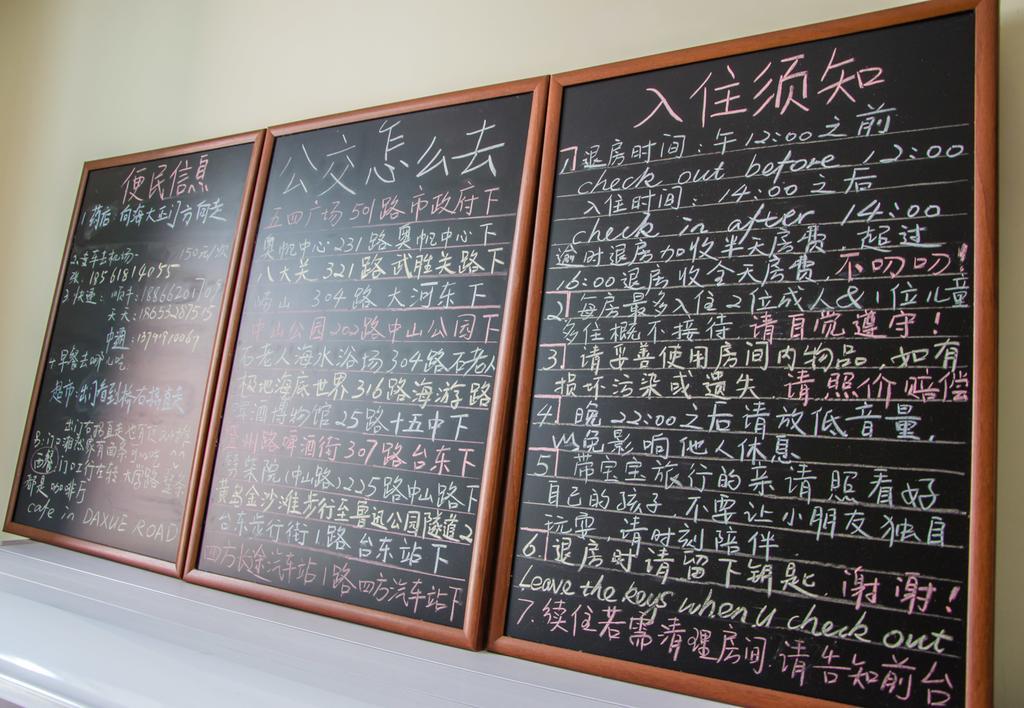 便民信息
1 药店 向海大正门方向走
2. 坐车去机场 150元/次
张. 18561814055
3 快递: 顺丰:18866201709
天天:18653287515
中通: 13791910067
4 早餐去哪儿吃
超市:出门看到桥右拐直走
出门右拐直走也有
家有面条可以吃 ^^
西餐,门口右转 大学路 整条
都是咖啡厅
cafe in DAXUE ROAD
公交怎么去
五四广场 501路 市政府下
奥帆中心 231路 奥帆中心下
八大关 321路 武胜关路下
崂山 304路 大河东下
中山公园 202路 中山公园下
石老人海水浴场 304路 石老人
极地海底世界 316路 海游路
啤酒博物馆 25路 十五中下
登州路啤酒街 307路 台东下
劈柴院(中山路) 225路 中山路下
黄岛金沙滩 步行至鲁迅公园隧道2
台东步行街 1路 台东站下
四方长途汽车站 1路 四方汽车站下
入住须知
1. 退房时间:午12:00之前
check out before 12:00
入住时间:14:00之后
check in after 14:00
逾时退房加收半天房费. 超过
16:00退房收全天房费 不叨叨!
2 每房最多入住2位成人&1位儿童
多住概不接待 请自觉遵守!
3. 请妥善使用房间内物品.如有
损坏污染或遗失 请照价赔偿
4. 晚22:00之后请放低音量,
以免影响他人休息
5. 带宝宝旅行的亲请照看好
自己的孩子 不要让小朋友独自
玩耍.请时刻陪伴
6. 退房时请留下钥匙.谢谢!
Leave the keys when u check out
7.续住若需清理房间.请告知前台